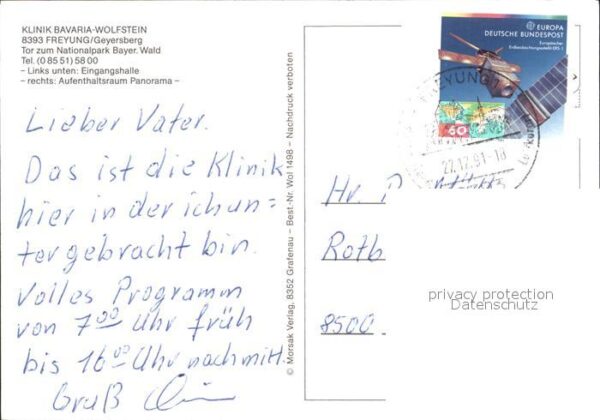 KLINIK BAVARIA-WOLFSTEIN
8393 FREYUNG/Geyersberg
Tor zum Nationalpark Bayer. Wald
Tel. (0 85 51) 58 00
– Links unten: Eingangshalle
– rechts: Aufenthaltsraum Panorama –
Lieber Vater.
Das ist die Klinik
hier in der ich un=
tergebracht bin.
Volles Programm
von 7 00 Uhr früh
bis 16 00 Uhr nachmitt.
Gruß
© Morsak Verlag, 8352 Grafenau – Best.-Nr. Wol 1498 – Nachdruck verboten
EUROPA
DEUTSCHE BUNDESPOST
Europäischer
Erdbeobachtungssatellit ERS-1
60
FREYUNG 1
22.12.91-18
Hr. P
Rotb
8500
privacy protection
Datenschutz